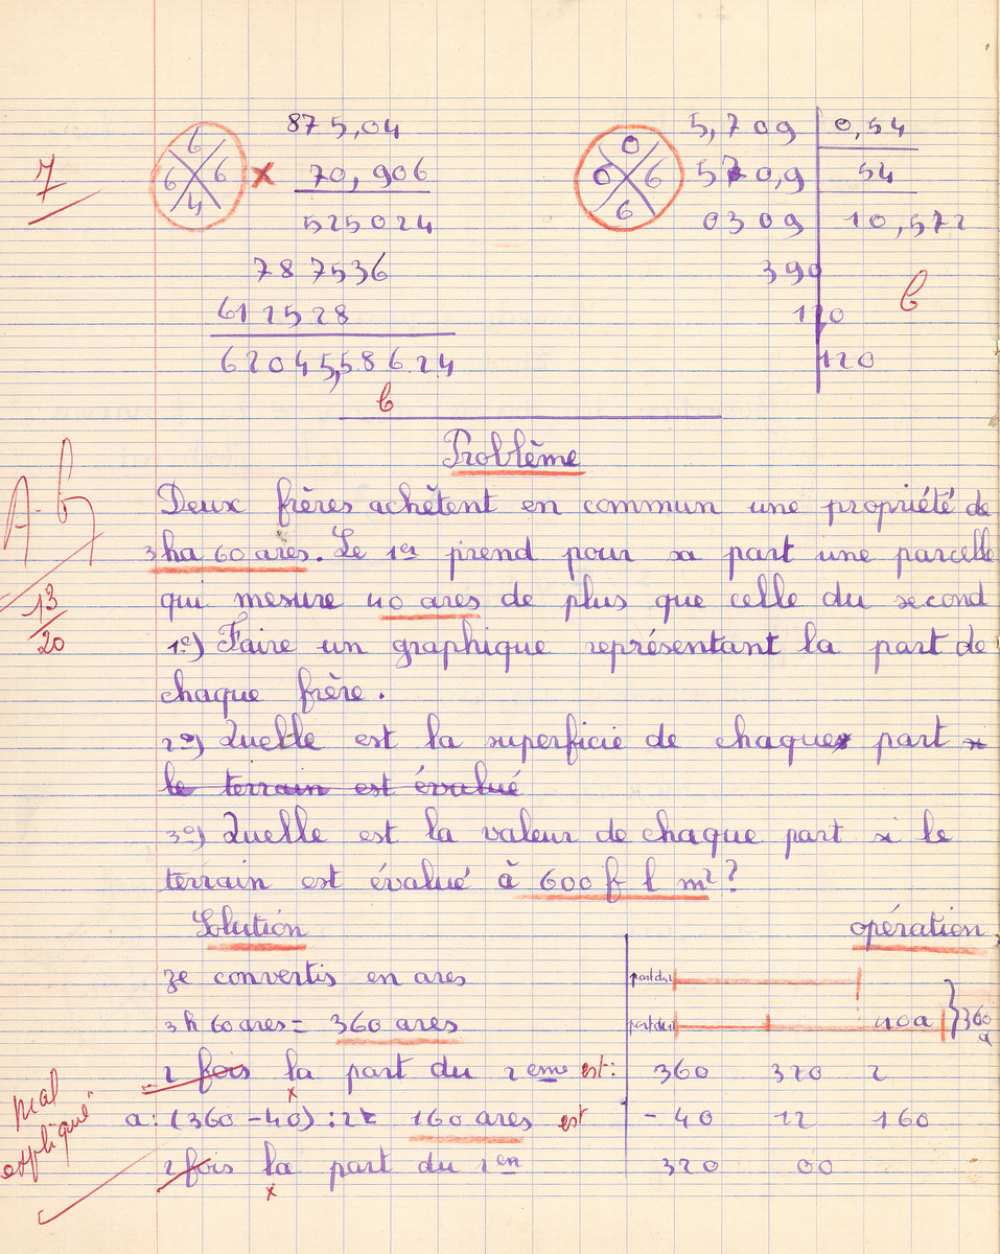 875,04
× 70,906
525024
787536
612528
62045,58624
6 6 6 4
7
b
5,709 | 0,54
570,9 | 54
0309 | 10,572
390
120
120
0 0 6 6
b
Problème
Deux frères achètent en commun une propriété de
3 ha 60 ares. Le 1er prend pour sa part une parcelle
qui mesure 40 ares de plus que celle du second
1º) Faire un graphique représentant la part de
chaque frère.
2º) Quelle est la superficie de chaque part
le terrain est évalué
3º) Quelle est la valeur de chaque part si le
terrain est évalué à 600 f l m²?
A.b
13
20
Solution
opération
Je convertis en ares
3h 60 ares = 360 ares
2 fois la part du 2eme est:
a: (360 - 40) : 2 = 160 ares est
2 fois la part du 1er
part du 2
part du 1
40a
360 a
360 320 2
- 40 12 160
320 00
mal
expliqué